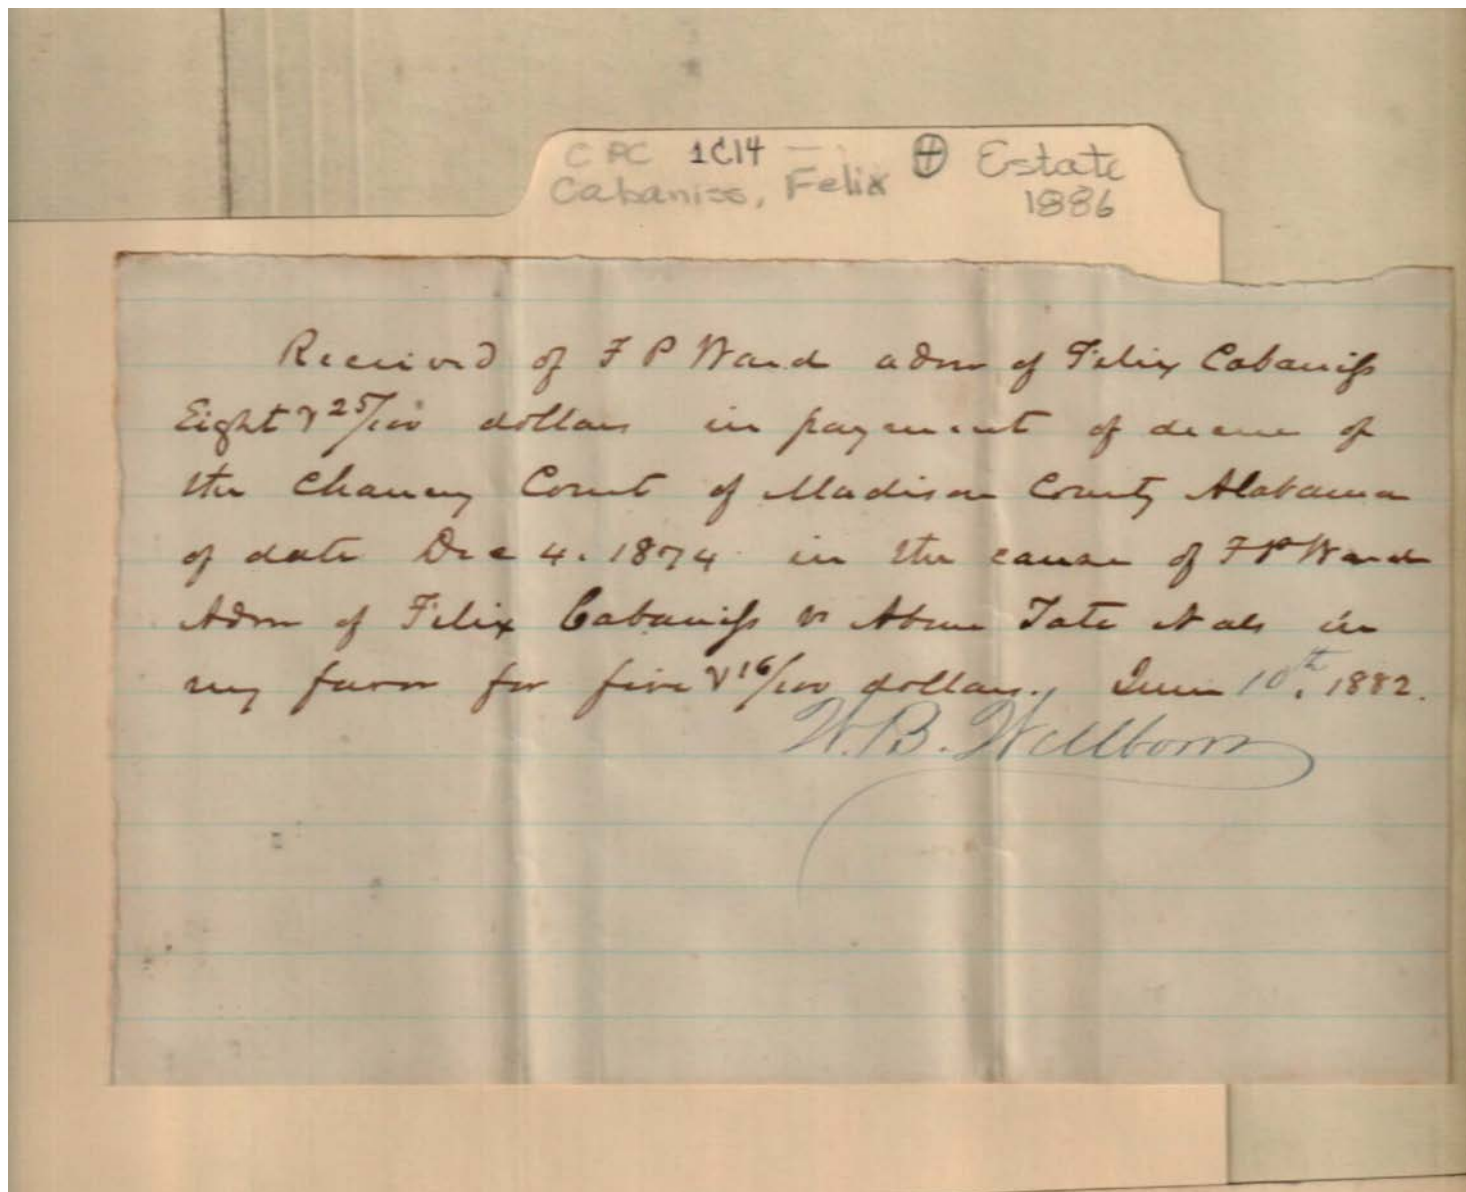 CPC 1C14 — Estate
Cabaniss, Felix 1886
Received of F P Ward adm of Felix Cabaniss
Eight & 25/100 dollars in payment of decree of
the Chancy Court of Madison County Alabama
of date Dec 4. 1874 in the cause of F P Ward
Adm of Felix Cabaniss vs Tate & als in
my favor for five & 16/100 dollars., June 10th, 1882.
W. B. Wellborn